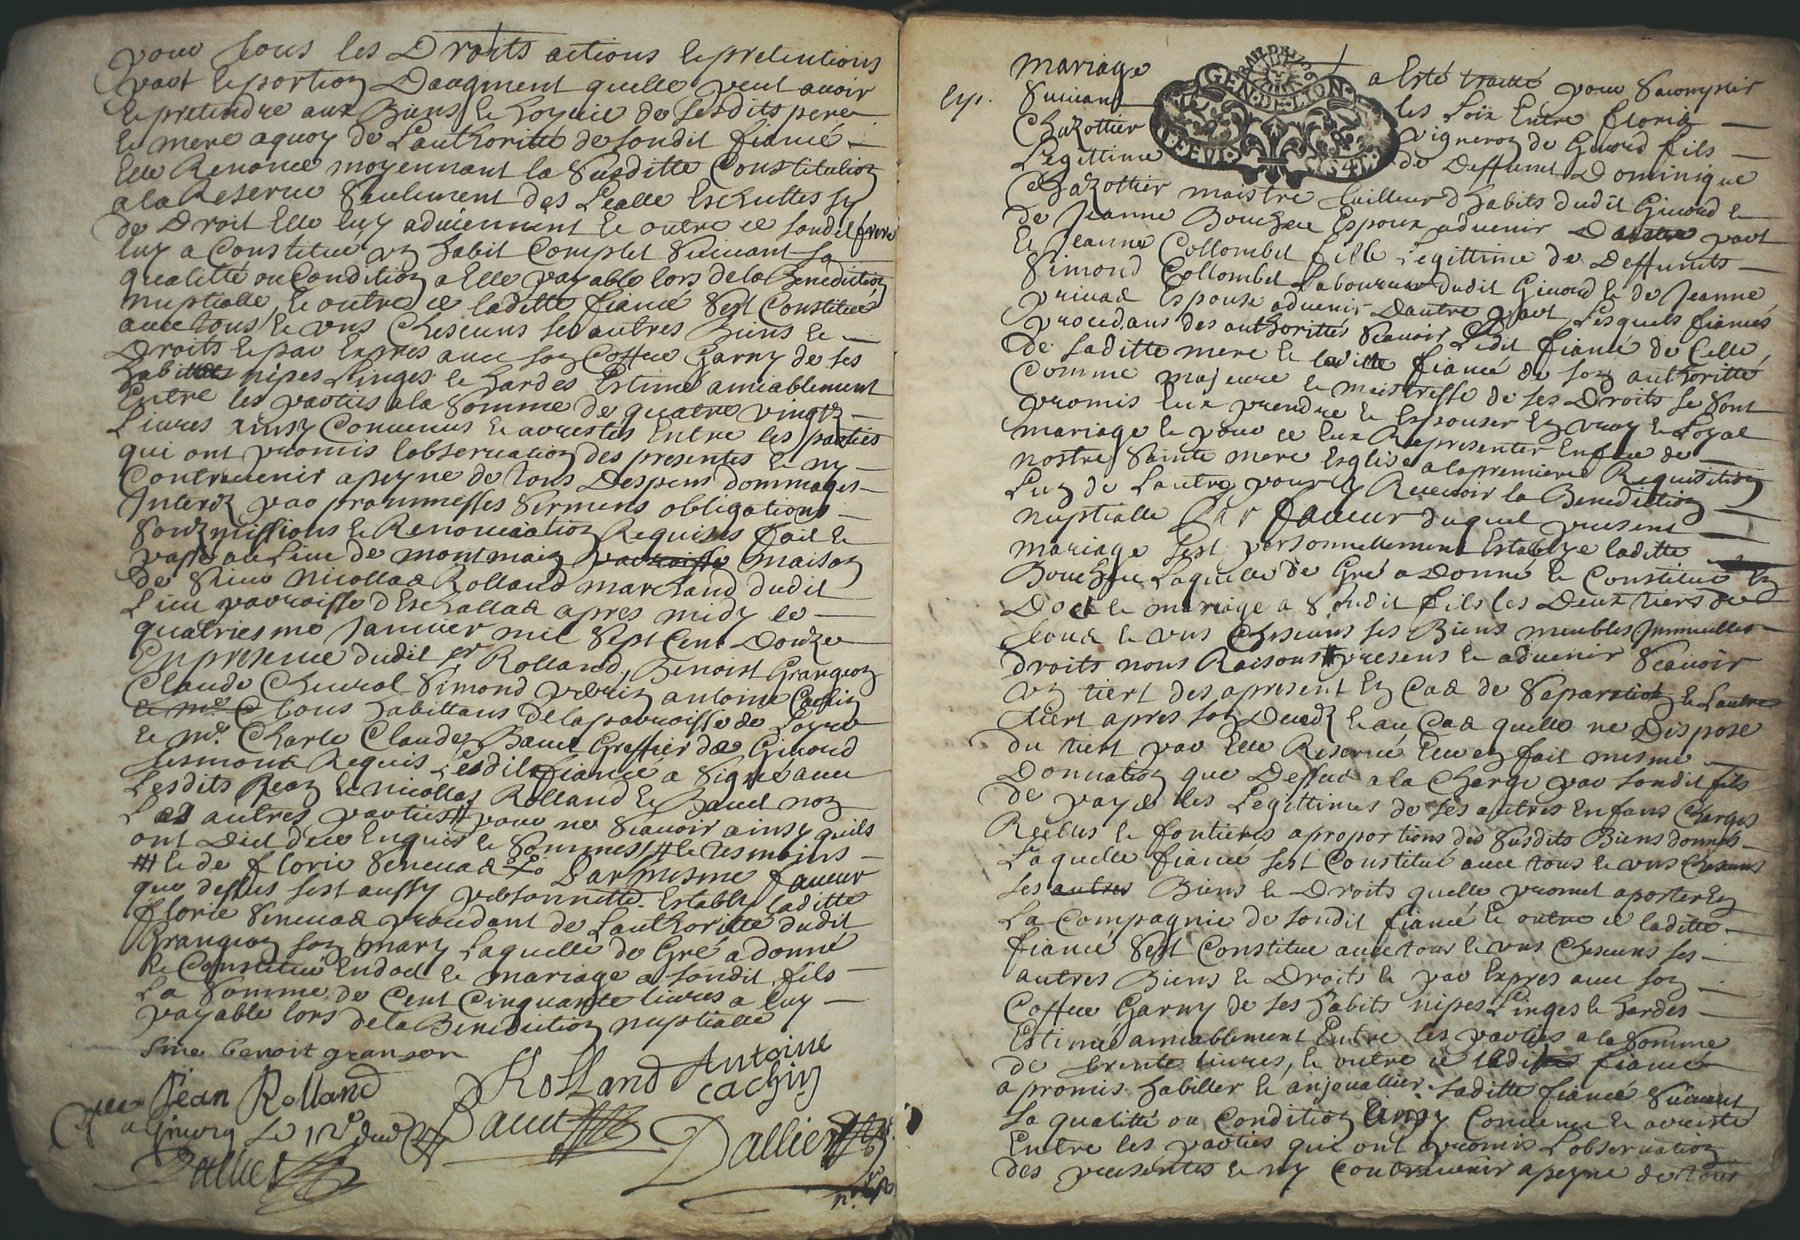 pour tous les Droits actions et pretentions
part et portion Daugment quelle peut avoir
et pretendre aux Biens et hoyrie de sesdits pere
et mere aquoy de Lauthoritté de sondit fiancé
Elle Renonce moyennant la susditte Constitution
a la Reserve seulement des Loialle Escheuttes sy
de Droit Elle luy adviennent et outre ce sondit frere
luy a Constitue un habit Complet suivant sa
qualitté ou Condition a Elle payable lors de la Benediction
nuptialle, et outre ce laditte fiancé sest Constitué
avec tous et uns Chescuns ses autres Biens et
Droits et par Expres avec son Coffre Garny de ses
habits nipes Linges et hardes Estimé amiablement
Entre les parties a la somme de quatre vingtz
Livres ainsy Convenus et arrestés Entre les parties
qui ont promis lobservation des presentes et ny
Contrevenir apeyne de tous Despens dommages
Interetz par prommesses serments obligations
soubzmissions et Renonciation Requises fait et
passé au Lieu de montmain parroisse maison
de sieur Nicollas Rolland marchand dudit
Lieu parroisse dEschallas apres midy le
quatriesme Janvier mil sept Cent Douze
En presence dudit sr Rolland, Benoist Grangeon
Claude Chevrol simond antoine Cachin
et me C tous habittans de la parroisse de
et me. Charle Claude Bauet Greffier de Givord
tesmoins Requis Lesdit fiancé a signé avec
Lesdits Jean et nicollas Rolland et Bauet non
Les autres parties # pour ne scavoir ainsy quils
ont Dict de ce Enquis et sommes # et tesmoins
# et de florie senevas Par mesme faveur
que dessus sest aussy personnellt. Establye laditte
florie senevas procedant de Lauthoritté dudit
Grangeon son mary Laquelle de Gré a donné
et Constitué En dot et mariage a sondit fils
La somme de Cent Cinquante livres a luy
payable lors de la Benediction nuptialle
sine benoit granson
Jean Rolland
Rolland Antoine
cachin
Bauet
Dallier
a Givord le 12e
Dallier
mariage
suivant
Chazottier
Legittime
Exp.
GEN·DE·LION
a Esté traitté pour saccomplir
les Loix Entre florid
vigneron de Givord fils
de Deffunt Dominique
Chazottier maistre tailleur dhabits dudit Givord et
de Jeanne Bouchu Espoux advenir Dautre part
Et Jeanne Collombet fille Legittime de Deffunts
Simond Collombet Laboureur dudit Givord et de Jeanne
privas Espouse advenir Dautre part Lesquels fiancés
procedans des authorittés scavoir Ledit fiancé de Celle
de saditte mere et laditte fiancé de son authoritté
Comme majeure et maistresse de ses Droits se sont
promis Eux prendre et Espouser En vray et Loyal
mariage et pour ce Eux Representer En face de
nostre Sainte mere Esglise a la premiere Requisition
Lun de Lautre pour y Recevoir la Benediction
nuptialle Par faveur duquel present
mariage sest personnellement Establye laditte
Bouchu Laquelle de Gré a Donné et Constitué En
Dot et mariage a sondit fils les Deux tiers de
tous et uns Chescuns ses Biens meubles Immeubles
droits noms Raisons presens et advenir scavoir
un tiert des apresent En Cas de separation et Lautre
tiert apres son Decedz et au Cas quelle ne Dispose
du tiert par Elle Reservé Elle en fait mesme
Donnation que Dessus a la Charge par sondit fils
de payer les Legittimes de ses autres Enfans Charges
Reelles et fontieres a proportions des susdits Biens donnés
Laquelle fiancé sest Constitué avec tous et uns Chescuns
ses autres Biens et Droits quelle promet aporter En
La Compagnie de sondit fiancé et outre ce laditte
fiancé sest Constitué avec tous et uns Chescuns ses
autres Biens et Droits et par Expres avec son
Coffre Garny de ses habits nipes Linges et hardes
Estimé amiablement Entre les parties a la somme
de trente livres, et outre ce ledit fiancé
a promis habiller et anjouallier saditte fiancé suivant
sa qualitté ou Condition ainsy Convenu et arresté
Entre les parties qui ont promis Lobservation
des presentes et ny Contrevenir apeyne de tous